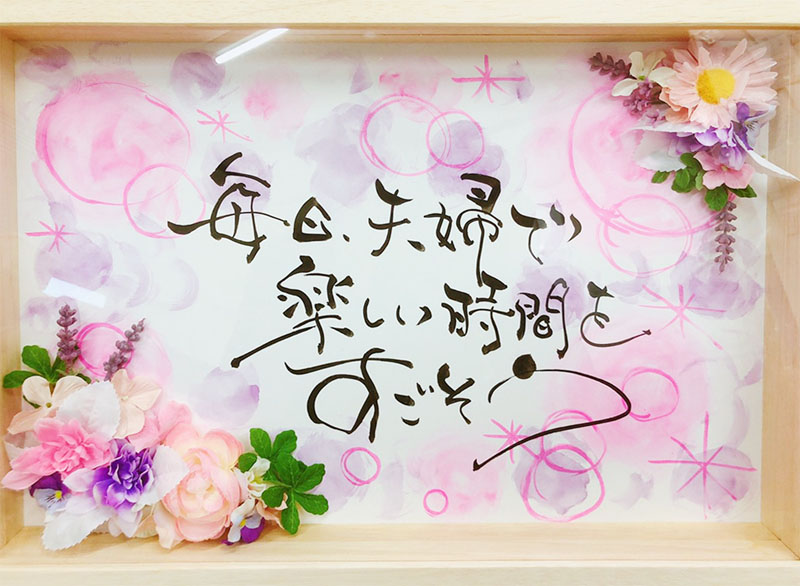 毎日、夫婦で
楽しい時間を
すごそう